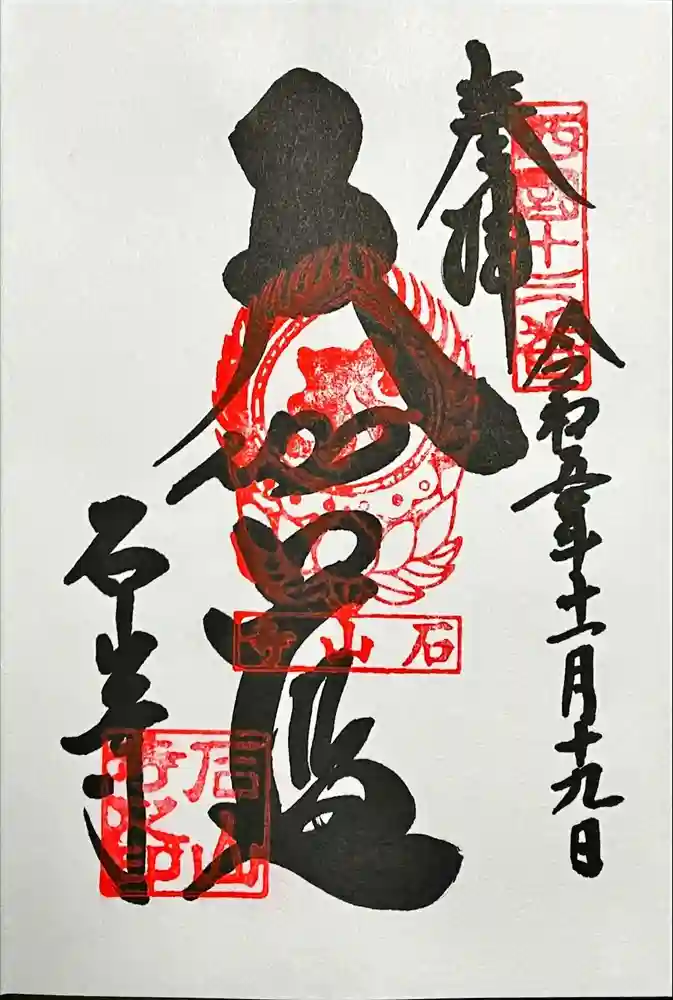 西国十三番
奉拝
令和五年十一月十九日
大伽藍
石山寺
石山寺
石山寺之印